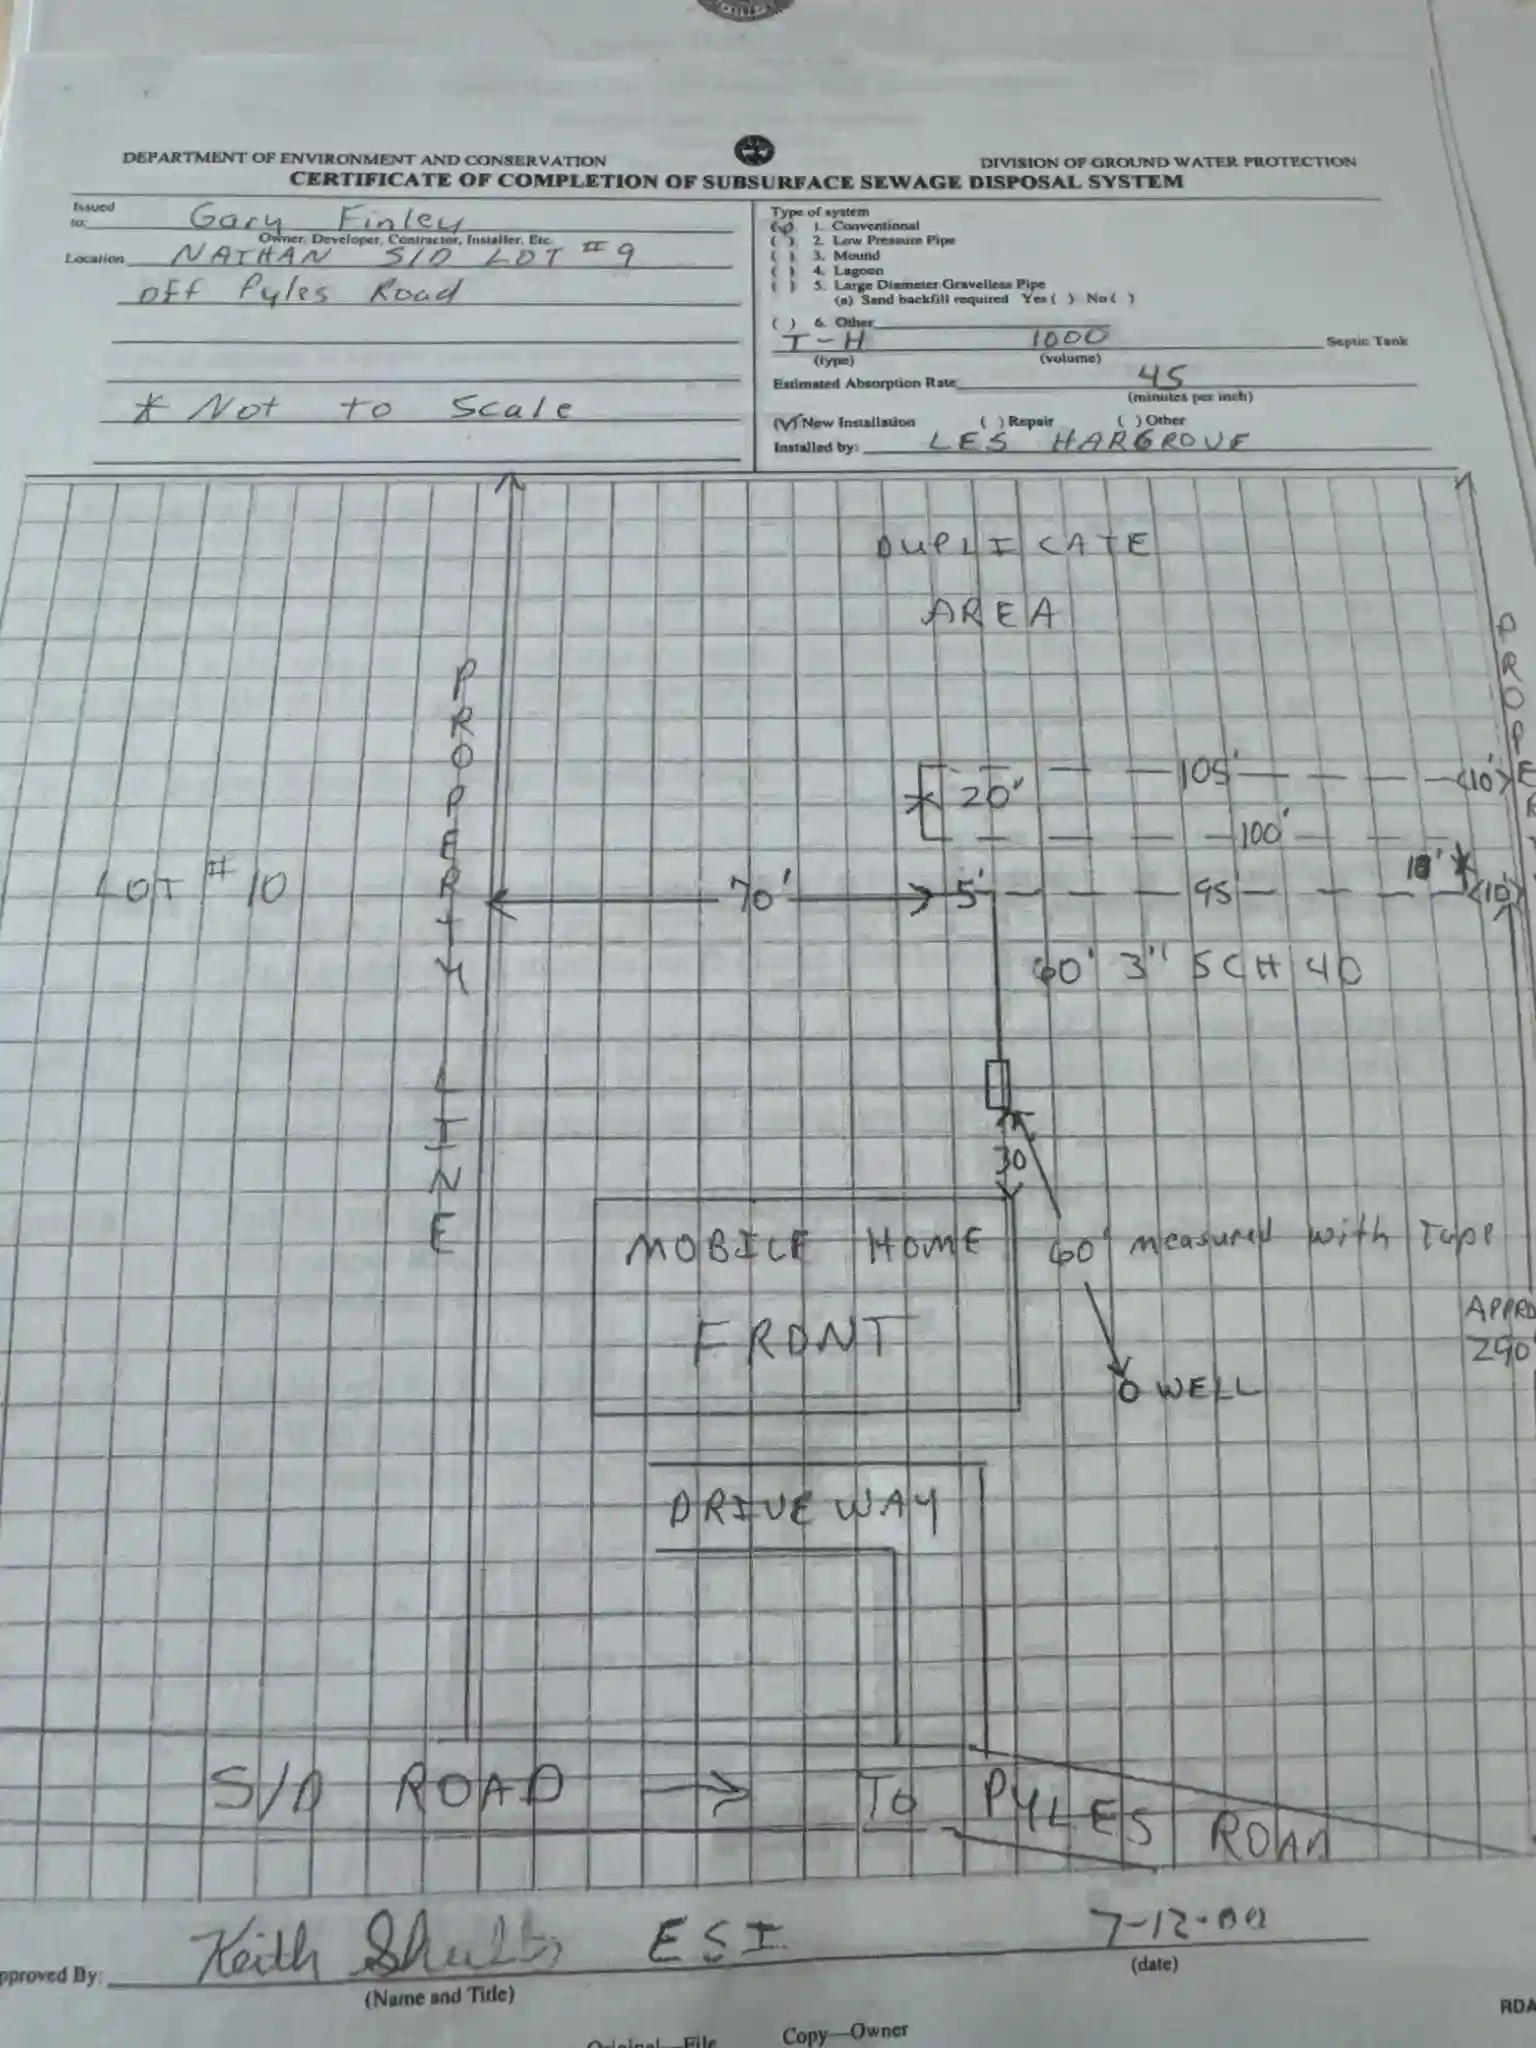 DEPARTMENT OF ENVIRONMENT AND CONSERVATION
DIVISION OF GROUND WATER PROTECTION
CERTIFICATE OF COMPLETION OF SUBSURFACE SEWAGE DISPOSAL SYSTEM
Issued to: Gary Finley
Owner, Developer, Contractor, Installer, Etc.
Location NATHAN S/D LOT #9
off Pyles Road
* Not to Scale
Type of system
(✓) 1. Conventional
( ) 2. Low Pressure Pipe
( ) 3. Mound
( ) 4. Lagoon
( ) 5. Large Diameter Gravelless Pipe
(a) Sand backfill required Yes ( ) No ( )
( ) 6. Other
I-H 1000 Septic Tank
(type) (volume)
Estimated Absorption Rate 45
(minutes per inch)
(✓) New Installation ( ) Repair ( ) Other
Installed by: LES HARGROVE
DUPLICATE
AREA
PROPERTY LINE
PROPER
105' <10'>
* 20'
100'
10' *
LOT #10
70' 5' 95' <10'>
60' 3" SCH 40
30'
MOBILE HOME
FRONT
60' measured with Tape
APPRO
290
O WELL
DRIVEWAY
S/D ROAD → TO PYLES ROAD
pproved By: Keith Shults ESI 7-12-00
(Name and Title) (date)
RDA
Original—File Copy—Owner